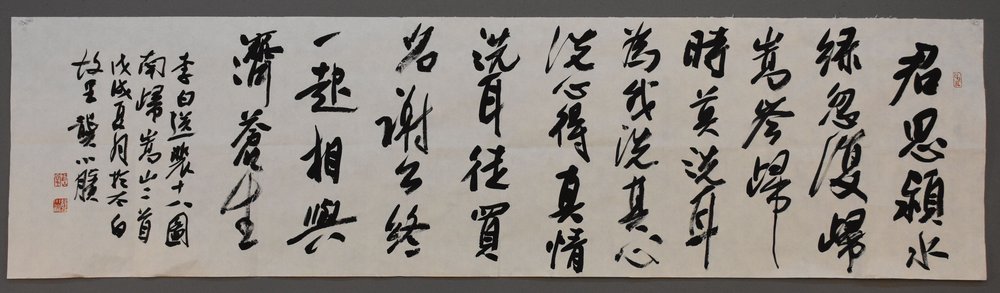 君思颍水
绿忽復歸
嵩岑歸
時莫洗耳
為我洗其心
洗心得真情
洗耳徒買
名謝公終
一起相與
濟蒼生
李白送裴十八圖
南歸嵩山二首
戊戌夏月於太白
故里龔小膑